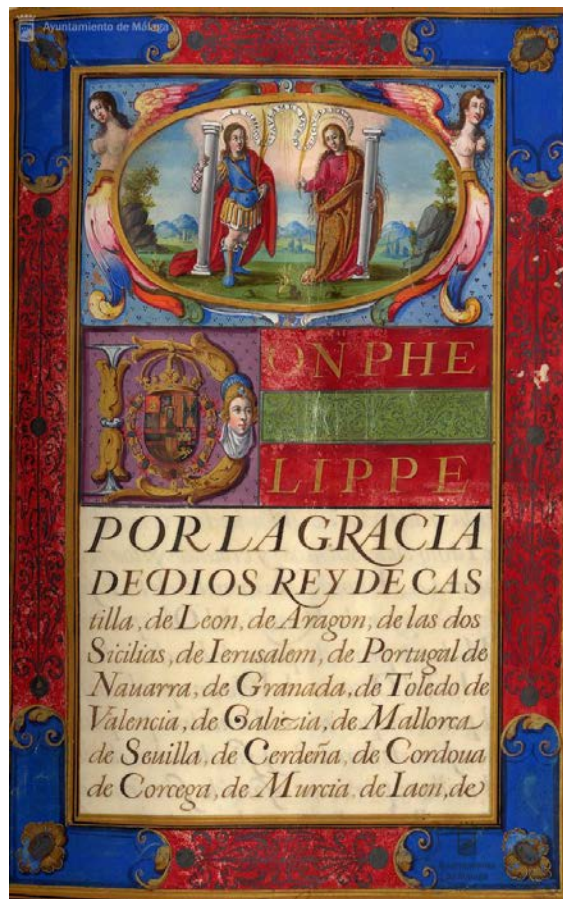 Ayuntamiento de Málaga
DON PHE
LIPPE
POR LA GRACIA
DE DIOS REY DE CAS
tilla, de Leon, de Aragon, de las dos
Sicilias, de Ierusalem, de Portugal de
Nauarra, de Granada, de Toledo de
Valencia, de Galizia, de Mallorca
de Seuilla, de Cerdeña, de Cordoua
de Corcega, de Murcia, de Iaen, de